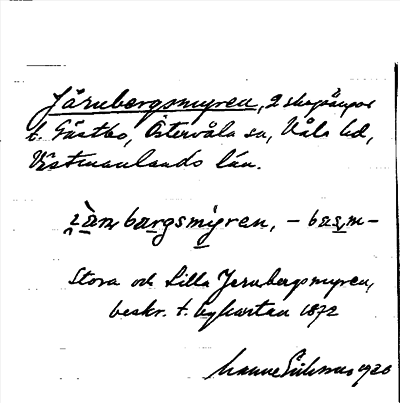 Järnbergsmyren, 2 skogsängar
t. Gästbo, Östervåla sn, Våla hd,
Västmanlands län.
bærgsmyren, –
Stora och Lilla Jernbergsmyren,
beskr. t. hgkartan 1872
1920